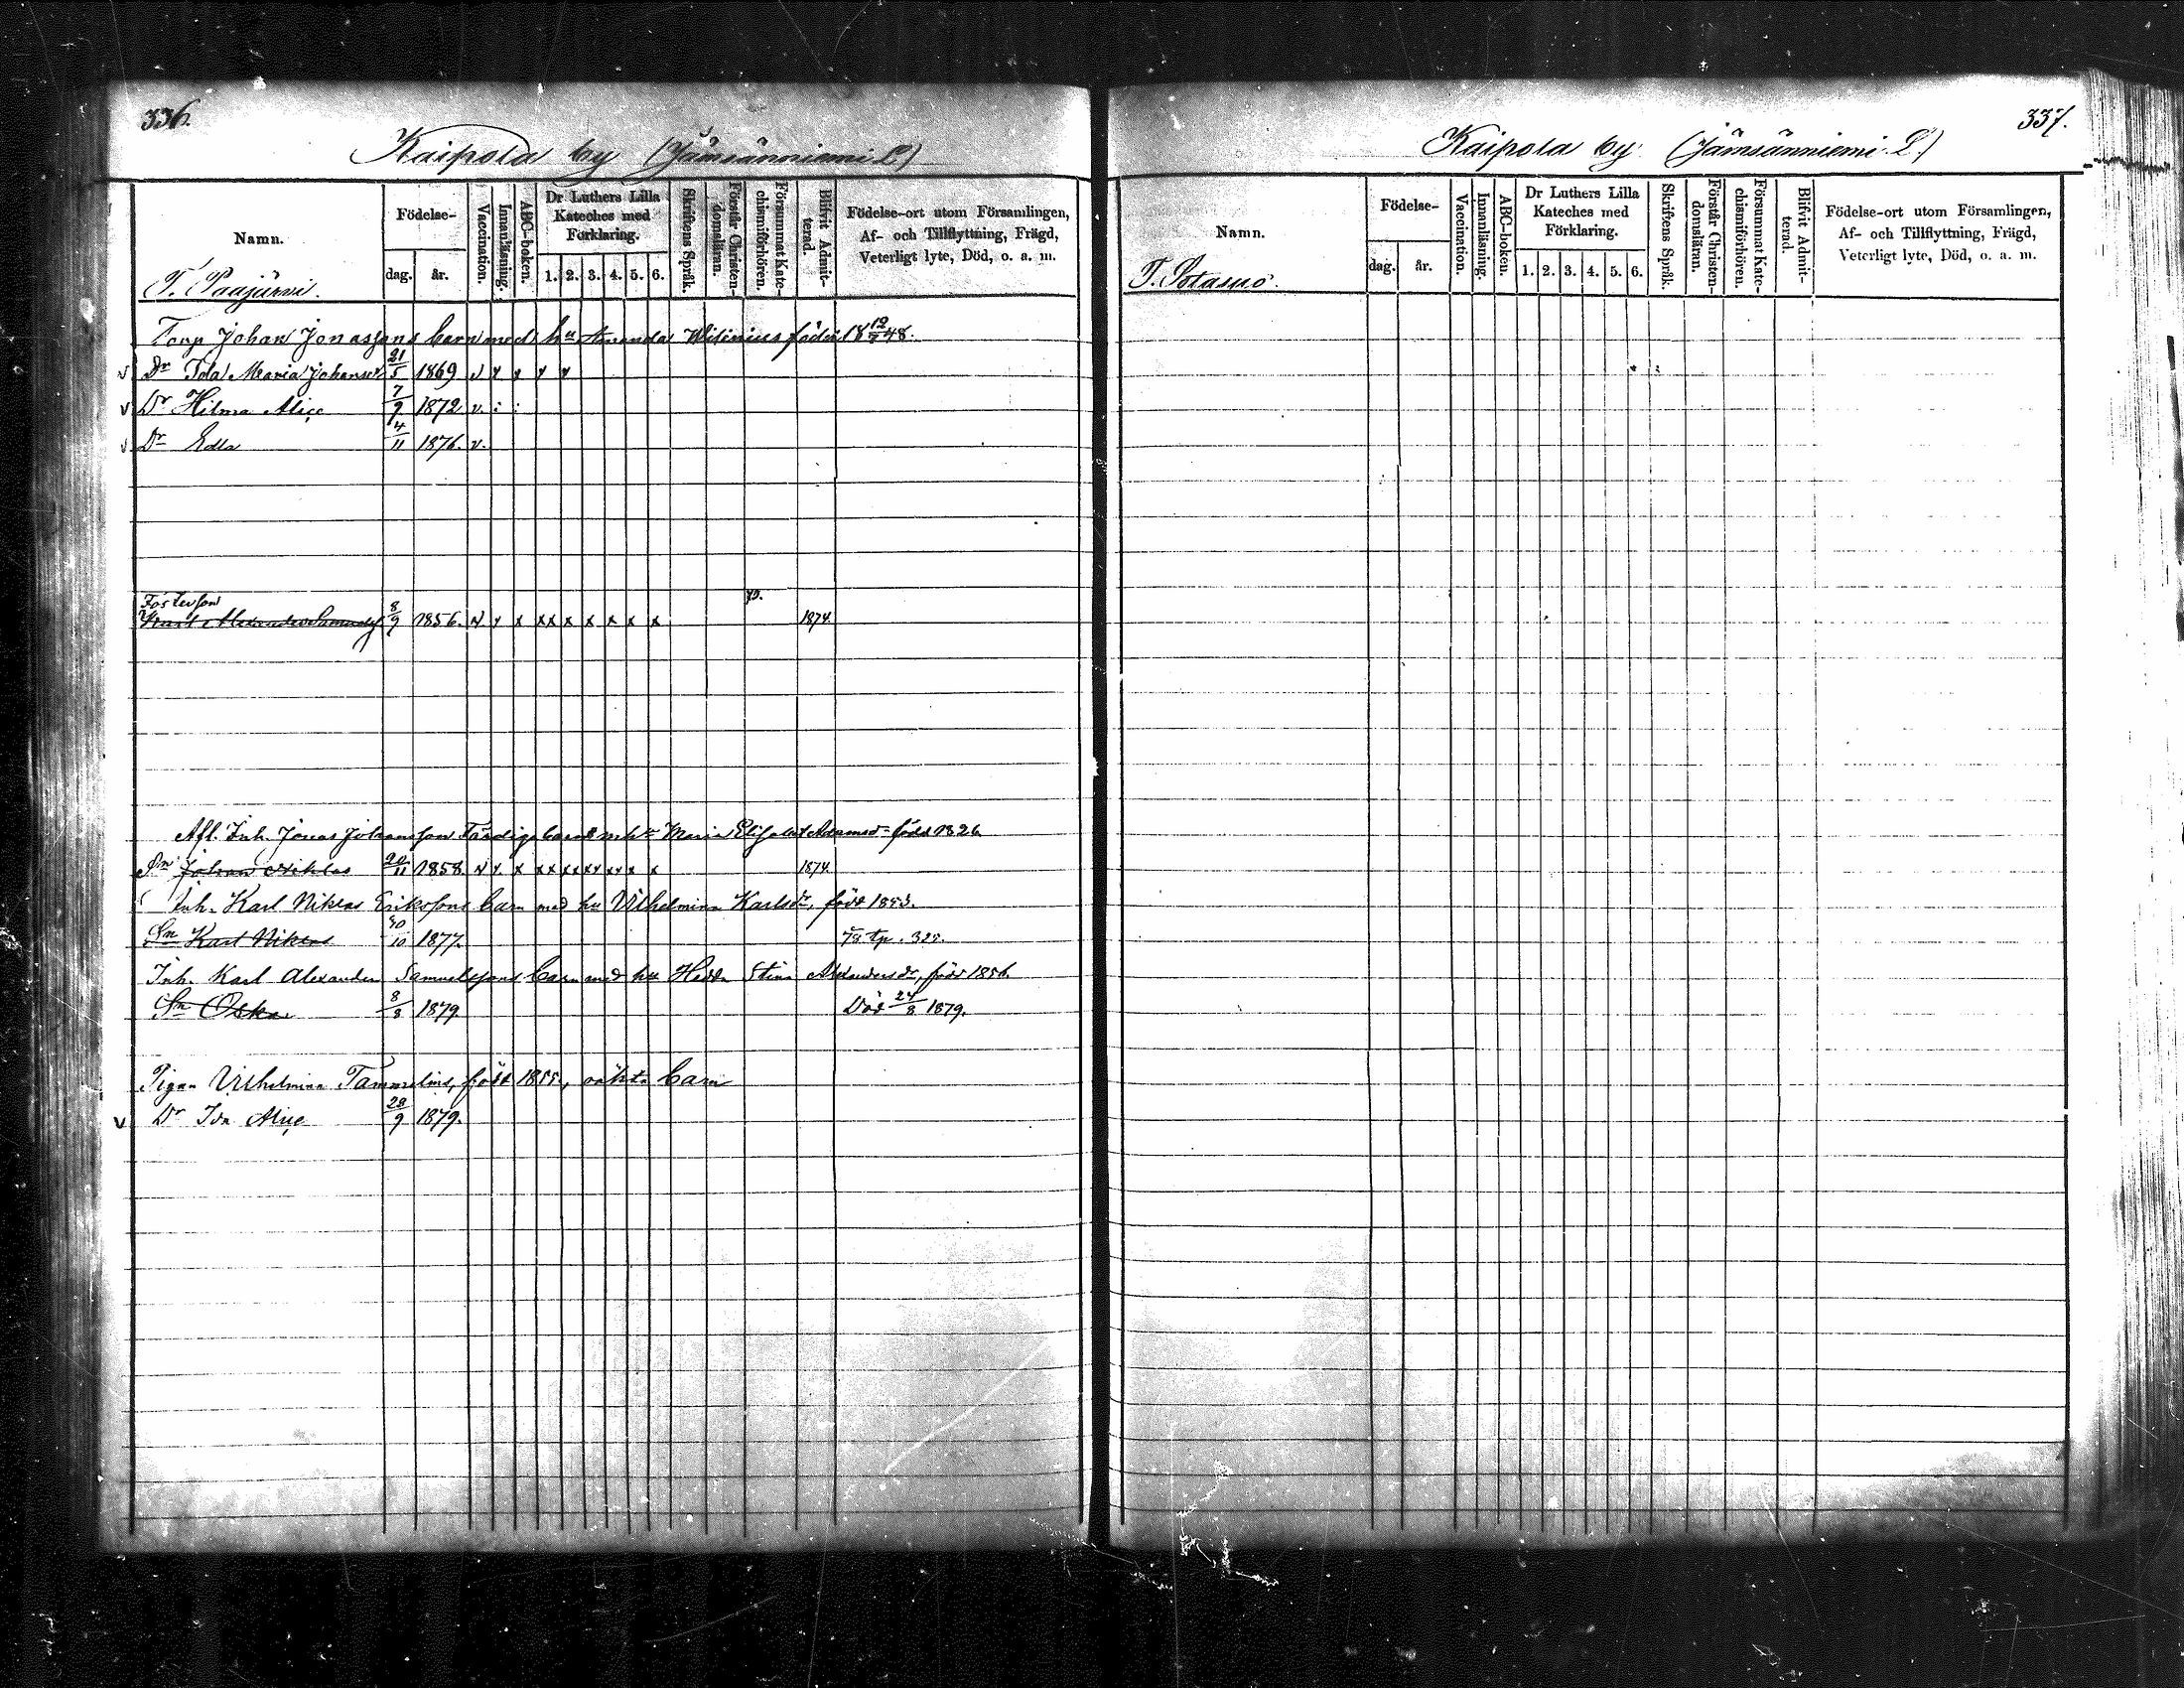 336.
Kaipola by (Jämsänniemi L)
Namn.
Födelse-
dag.
år.
Vaccination.
Innanläsning.
ABC-boken.
Dr Luthers Lilla
Kateches med
Förklaring.
1. 2. 3. 4. 5. 6.
Skriftens Språk.
Förstår Christen-
domsläran.
Försummat Kate-
chismiförhören.
Blifvit Admit-
terad.
Födelse-ort utom Församlingen,
Af- och Tillflyttning, Frägd,
Veterligt lyte, Död, o. a. m.
T. Paajärvi.
Torp Johan Jonassons barn med hu Amanda född 18 48.
v Dr Ida Maria Johansdr 21/5 1869 v x x x x
v Dr Hilma Alice 7/9 1872 v. : :
v Dr Edla 4/11 1876. v.
Fosterson
8/9 1856. v x x xx x x x x x 1874
Afl. Inh. Jonas Johansson barn m hu Maria Elisabet Adamsdr född 1826
Sn Johan Niklas 20/11 1858. v x. x xx xx xx xx x x 1874.
Inh. Karl Niklas Erikssons barn med hu Vilhelmina Karlsdr, född 1853.
Sn Karl Niklas 1877. 78 tp. 325.
Inh. Karl Alexander Samuelssons barn med hu Hedda Stina Alexandersdr, född 1856
Sn Oskar 8/8 1879. Död 24/8 1879.
Pigan Vilhelmina Tammelins, född 1855, oäkta barn
v Dr Ida Alice 29/9 1879.
337.
Kaipola by (Jämsänniemi L.)
Namn.
Födelse-
dag.
år.
Vaccination.
Innanläsning.
ABC-boken.
Dr Luthers Lilla
Kateches med
Förklaring.
1. 2. 3. 4. 5. 6.
Skriftens Språk.
Förstår Christen-
domsläran.
Försummat Kate-
chismiförhören.
Blifvit Admit-
terad.
Födelse-ort utom Församlingen,
Af- och Tillflyttning, Frägd,
Veterligt lyte, Död, o. a. m.
T. Sotasuo.